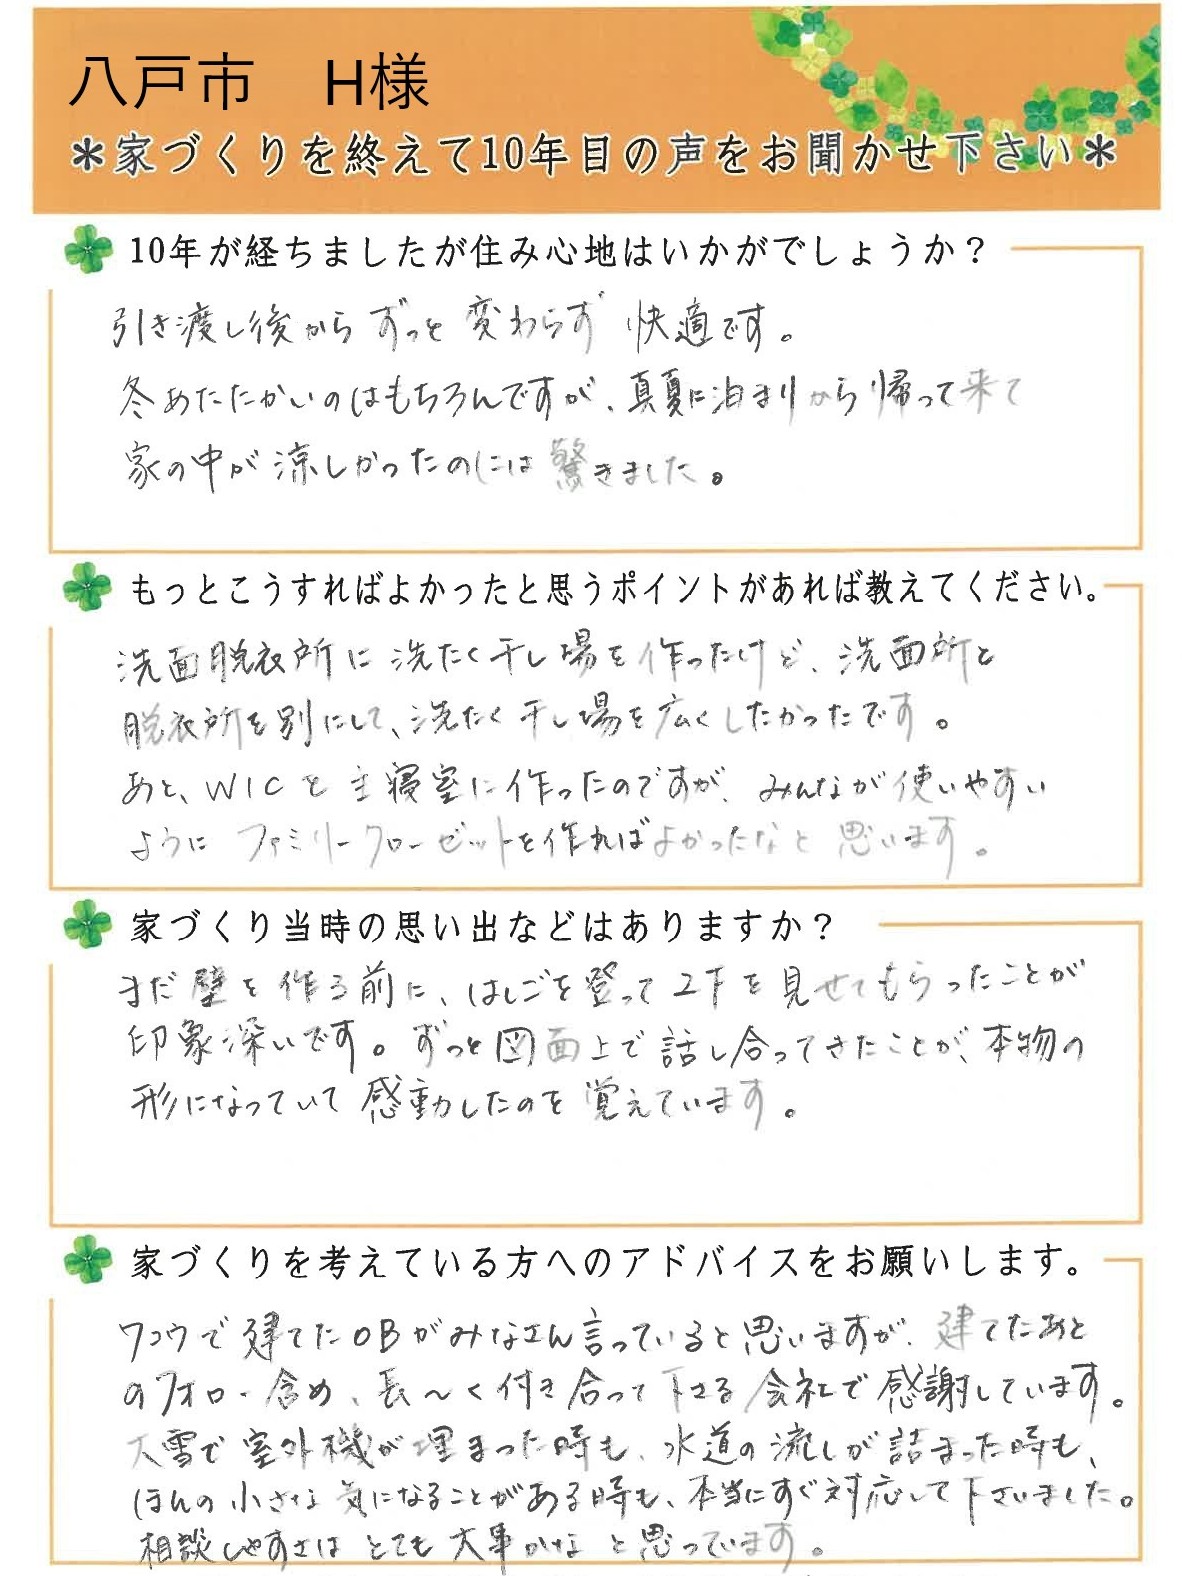 八戸市　H様
＊家づくりを終えて10年目の声をお聞かせ下さい＊
10年が経ちましたが住み心地はいかがでしょうか？
引き渡し後からずっと変わらず快適です。
冬あたたかいのはもちろんですが、真夏に泊まりから帰って来て
家の中が涼しかったのには驚きました。
もっとこうすればよかったと思うポイントがあれば教えてください。
洗面脱衣所に洗たく干し場を作ったけど、洗面所と
脱衣所を別にして、洗たく干し場を広くしたかったです。
あと、WICを主寝室に作ったのですが、みんなが使いやすい
ようにファミリークローゼットを作ればよかったなと思います。
家づくり当時の思い出などはありますか？
まだ壁を作る前に、はしごを登って2Fを見せてもらったことが
印象深いです。ずっと図面上で話し合ってきたことが、本物の
形になっていて感動したのを覚えています。
家づくりを考えている方へのアドバイスをお願いします。
ワコウで建てたOBがみなさん言っていると思いますが、建てたあと
のフォロー含め、長〜く付き合って下さる会社で感謝しています。
大雪で室外機が埋まった時も、水道の流しが詰まった時も、
ほんの小さな気になることがある時も、本当にすぐ対応して下さいました。
相談しやすさはとても大事かなと思っています。